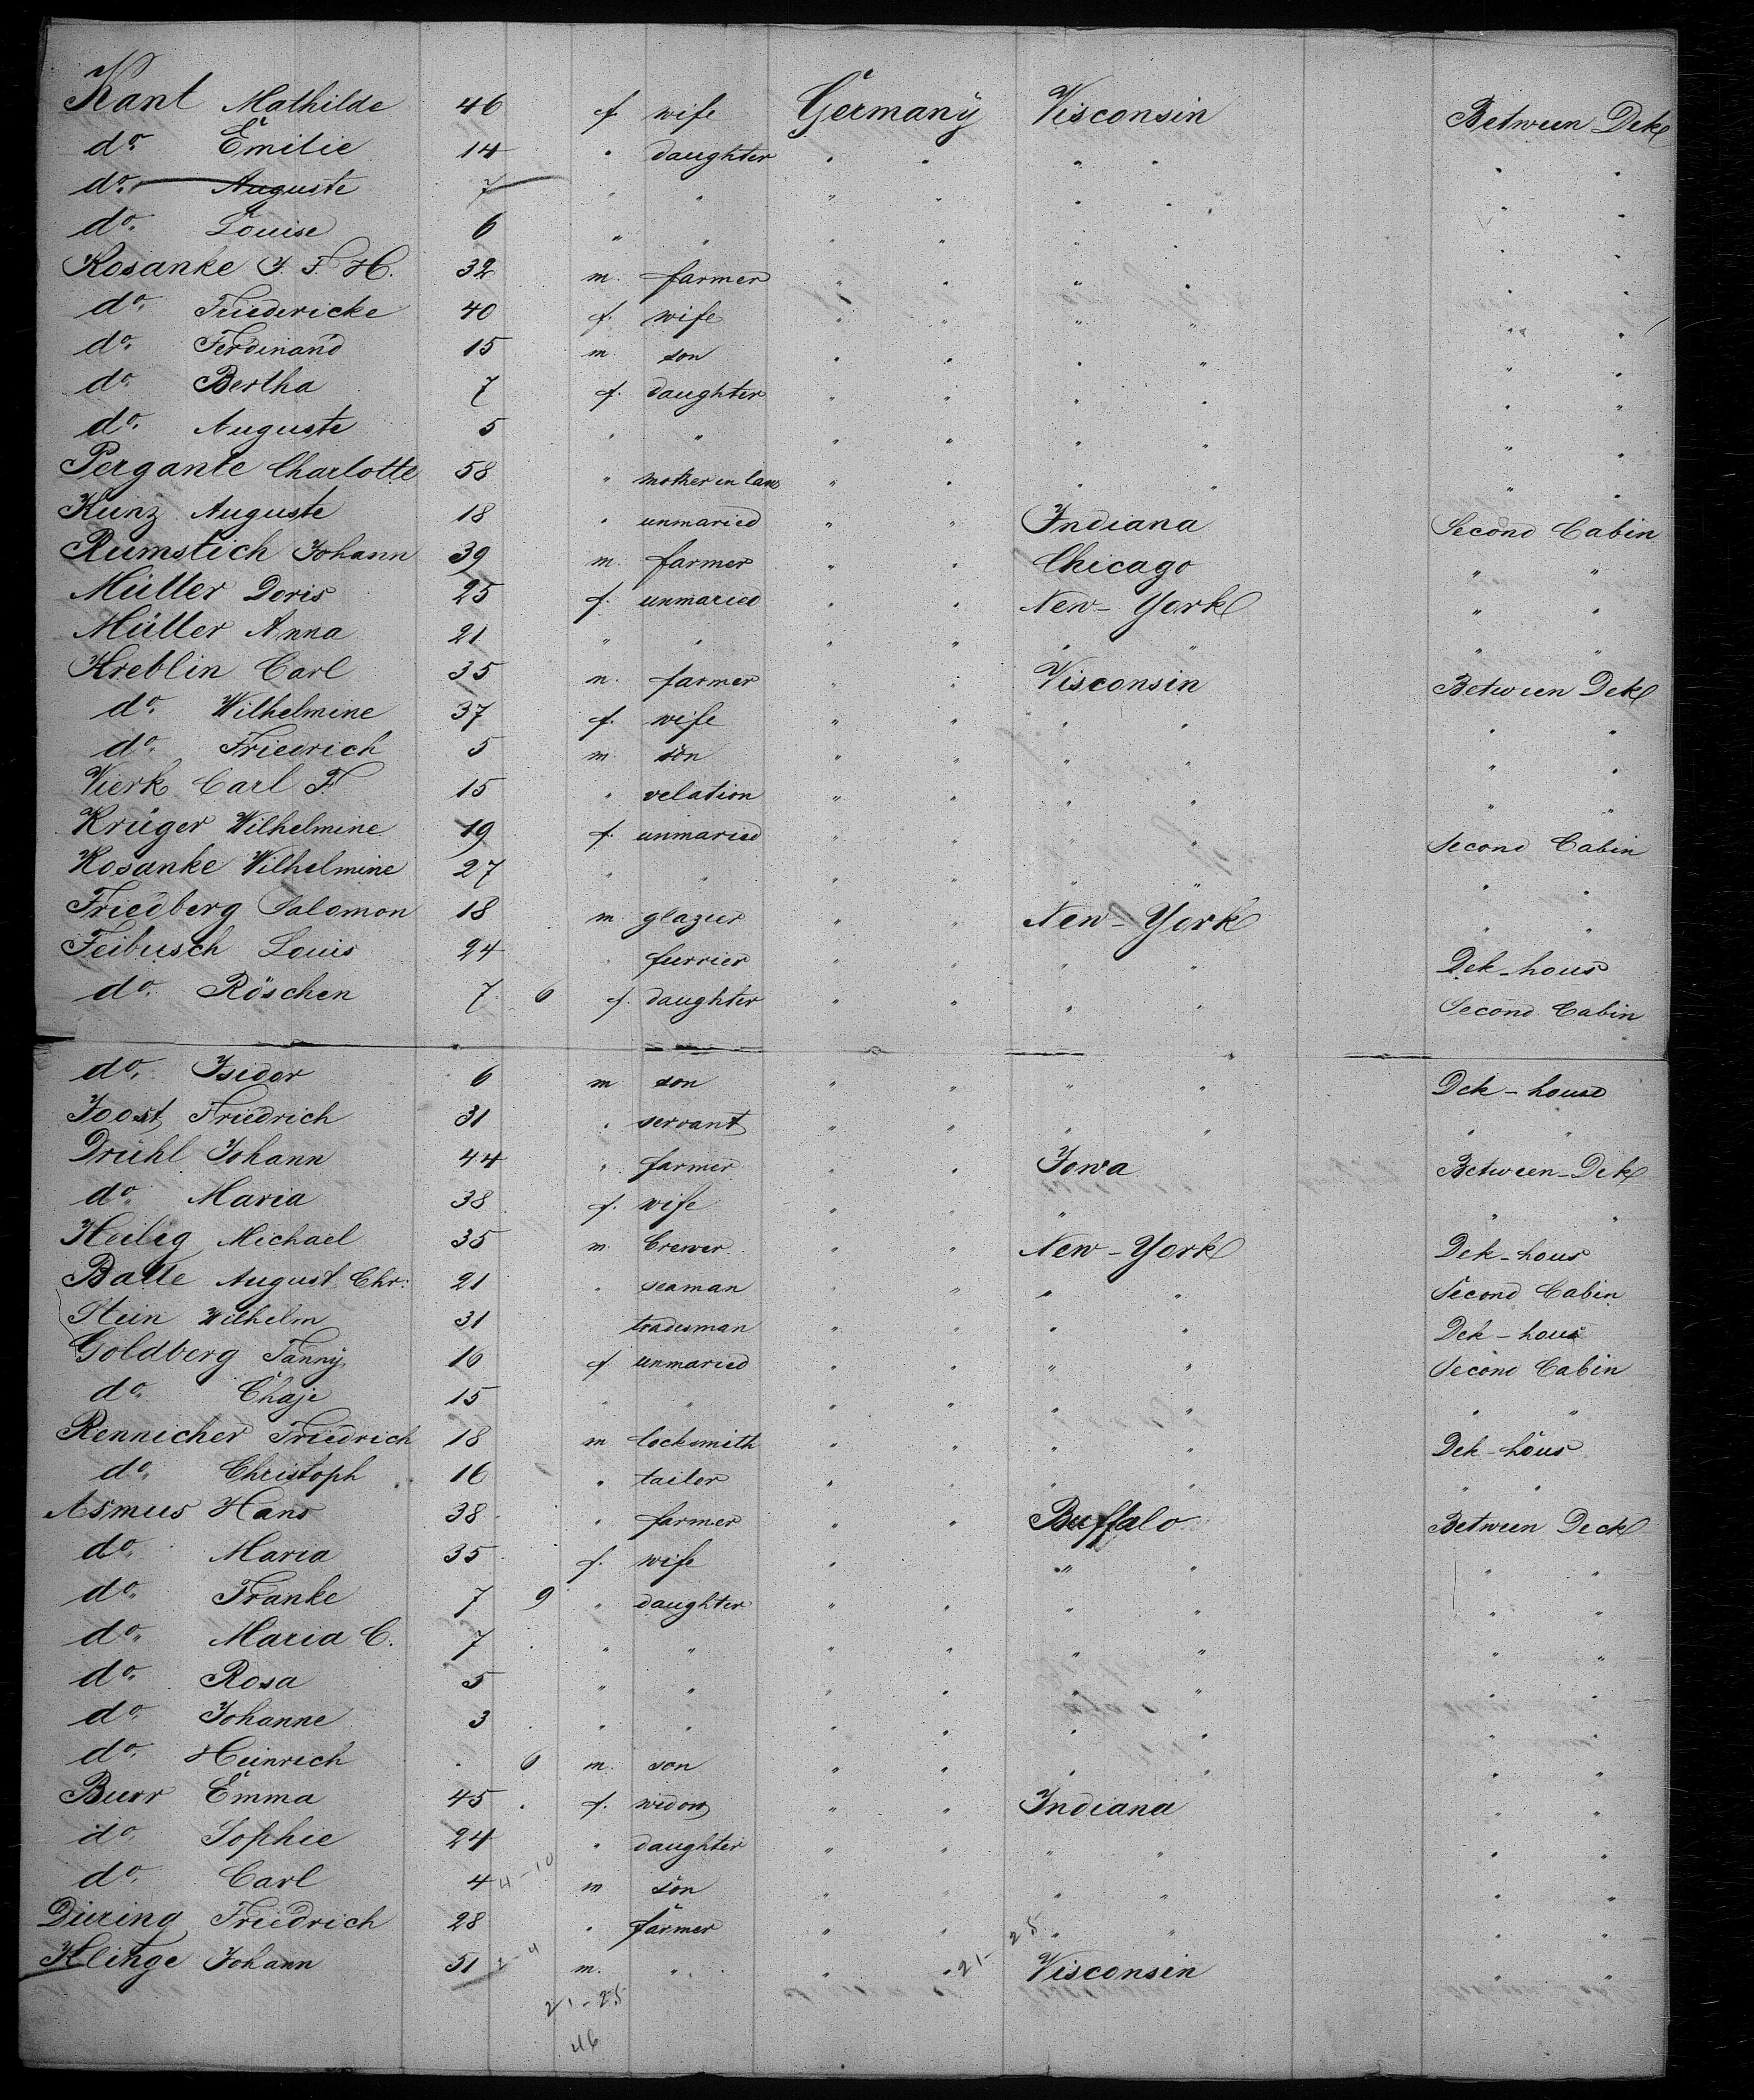 Kant Mathilde 46 f. wife Germany Visconsin Between Dek
do. Emilie 14 " daughter " " " " " "
do. Auguste 7 " " " " " " " "
do. Louise 6 " " " " " " " "
Kosanke J. F. H. 32 m. farmer " " " " " "
do. Friedericke 40 f. wife " " " " " "
do. Ferdinand 15 m son " " " " " "
do. Bertha 7 f. daughter " " " " " "
do. Auguste 5 " " " " " " " "
Pergante Charlotte 58 " mother in law " " " " " "
Kunz Auguste 18 " unmaried " " Indiana Second Cabin
Rumstich Johann 39 m. farmer " " Chicago " "
Müller Doris 25 f. unmaried " " New-York " "
Müller Anna 21 " " " " " " " "
Kreblin Carl 35 m. farmer " " Visconsin Between Dek
do. Wilhelmine 37 f. wife " " " " " "
do. Friedrich 5 m son " " " " " "
Vierk Carl F. 15 " relation " " " " " "
Krüger Wilhelmine 19 f. unmaried " " " " Second Cabin
Kosanke Wilhelmine 27 " " " " " " " "
Friedberg Salomon 18 m glazier " " New-York " "
Feibusch Louis 24 " furrier " " " " Dek-hous
do. Röschen 7 6 f. daughter " " " " Second Cabin
do. Isidor 6 m son " " " " Dek-house
Joost Friedrich 31 " servant " " " " " "
Drühl Johann 44 " farmer " " Iowa Between-Dek
do. Maria 38 f. wife " " " " "
Heilig Michael 35 m brewer " " New-York Dek-hous
Balle August Chr: 21 " seaman " " " " Second Cabin
Stein Wilhelm 31 tradesman " " " " Dek-hous
Goldberg Fanny 16 f. unmaried " " " " Second Cabin
do. Chaje 15 " " " " " " " "
Rennicher Friedrich 18 m locksmith " " " " Dek-hous
do. Christoph 16 " tailor " " " " " "
Asmus Hans 38 " farmer " " Buffalo Between Deck
do. Maria 35 f. wife " " " " "
do. Franke 7 9 " daughter " " " " " "
do. Maria C. 7 " " " " " " " "
do. Rosa 5 " " " " " " " "
do. Johanne 3 " " " " " " " "
do. Heinrich 6 m. son " " " " " "
Burr Emma 45 f. widow " " Indiana " "
do. Sophie 24 " daughter " " " " " "
do. Carl 4 4-10 m son " " " " " "
Düring Friedrich 28 " farmer " " " " " "
Klinge Johann 51 2-4 m. " " " 21-25 Visconsin " "
21-25
46